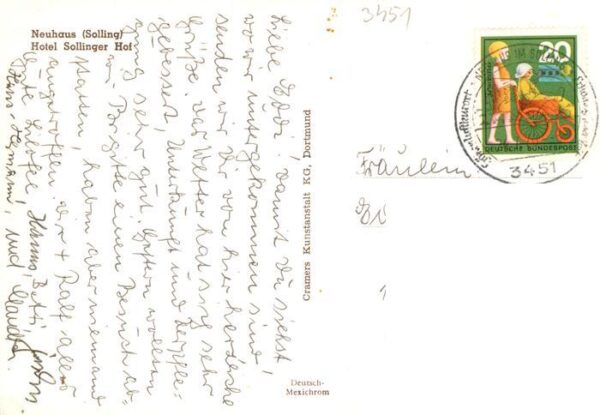 Neuhaus (Solling)
Hotel Sollinger Hof
Liebe Eddi, damit du siehst,
wo wir untergekommen sind,
senden wir Dir von hier herzliche
Grüße. Das Wetter hat sich sehr
gebessert, Unterkunft und Verpfle-
gung sehr gut. Gestern wollten
wir Brigitte einen Besuch ab-
statten, haben aber niemand
angetroffen. Dir + Ralf alles
Gute
Hanno, Betti,
Hans-Hermann, und Claudia.
Cramers Kunstanstalt KG, Dortmund
Deutsch-
Mexichrom
3451
20
DEUTSCHE BUNDESPOST
3451
Fräulein